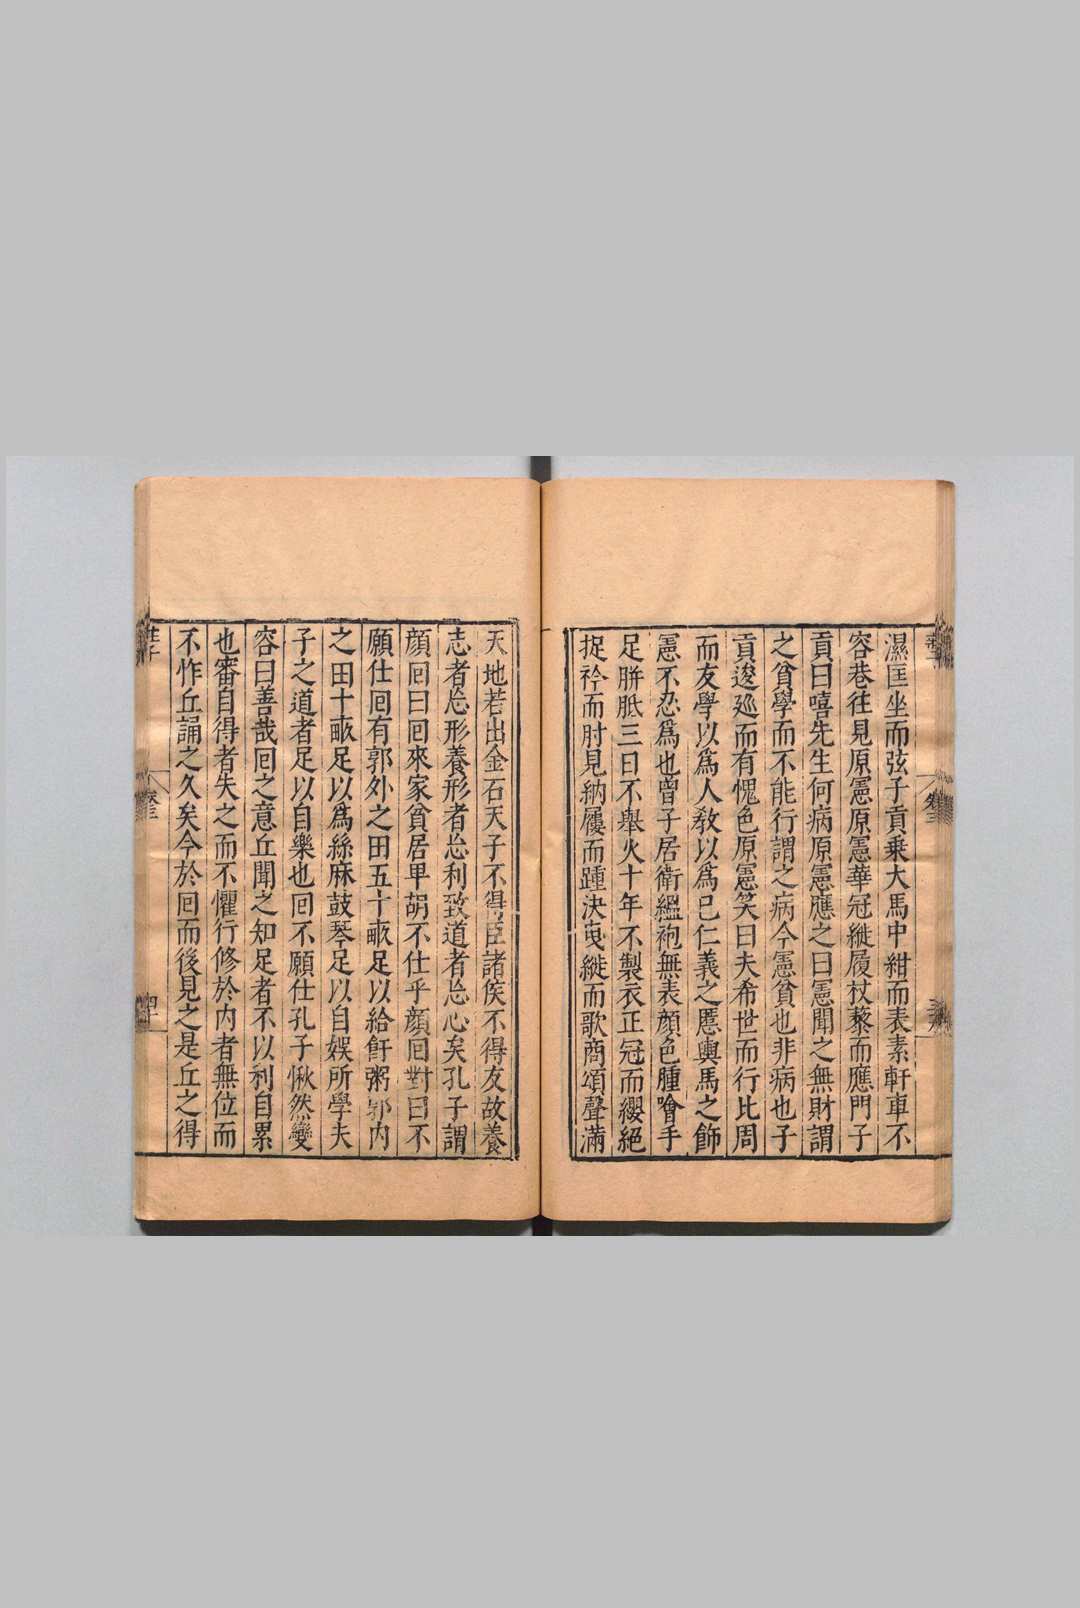 濕匡坐而弦子貢乗大馬中紺而表素軒車不
容巷往見原憲原憲華冠縰履杖藜而應門子
貢曰嘻先生何病原憲應之曰憲聞之無財謂
之貧學而不能行謂之病今憲貧也非病也子
貢逡廵而有愧色原憲笑曰夫希世而行比周
而友學以爲人教以爲已仁義之慝輿馬之飾
憲不忍爲也曾子居衛緼袍無表顔色腫噲手
足胼胝三日不舉火十年不製衣正冠而纓絕
捉衿而肘見納屨而踵決曳縰而歌商頌聲滿
天地若出金石天子不得臣諸侯不得友故養
志者忘形養形者忘利致道者忘心矣孔子謂
顔囘曰囘來家貧居𤰞胡不仕乎顔囘對曰不
願仕囘有郭外之田五十畝足以給飦粥郭内
之田十畝足以爲絲麻鼓琴足以自娛所學夫
子之道者足以自樂也囘不願仕孔子愀然變
容曰善哉囘之意丘聞之知足者不以利自累
也審自得者失之而不懼行修於内者無位而
不怍丘誦之久矣今於囘而後見之是丘之得